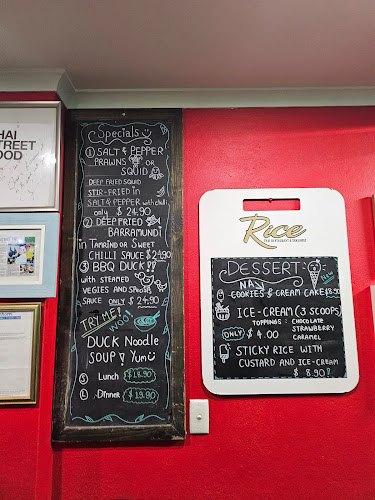 HAI
STREET
OOD
Specials
① SALT & PEPPER
PRAWNS OR
SQUID
DEEP FRIED SQUID
STIR-FRIED in
SALT & PEPPER with chilli
only $ 24.90
② DEEP FRIED
BARRAMUNDI
in TAMRIND OR SWEET
CHILLI SAUCE $24.90
③ BBQ DUCK!!
with STEAMED
VEGIES AND SPECIAL
SAUCE ONLY $ 24.90
TRY ME!
WOO!
DUCK Noodle
SOUP! Yum
Ⓢ Lunch $14.90
Ⓛ Dinner $19.90
Rice
THAI RESTAURANT & TAKEAWAY
DESSERT:
NEW
COOKIES & CREAM CAKE $8.90
ICE-CREAM (3 SCOOPS)
TOPPINGS: CHOCOLATE
STRAWBERRY
CARAMEL
ONLY $ 4.00
STICKY RICE WITH
CUSTARD AND ICE-CREAM
$ 8.90!